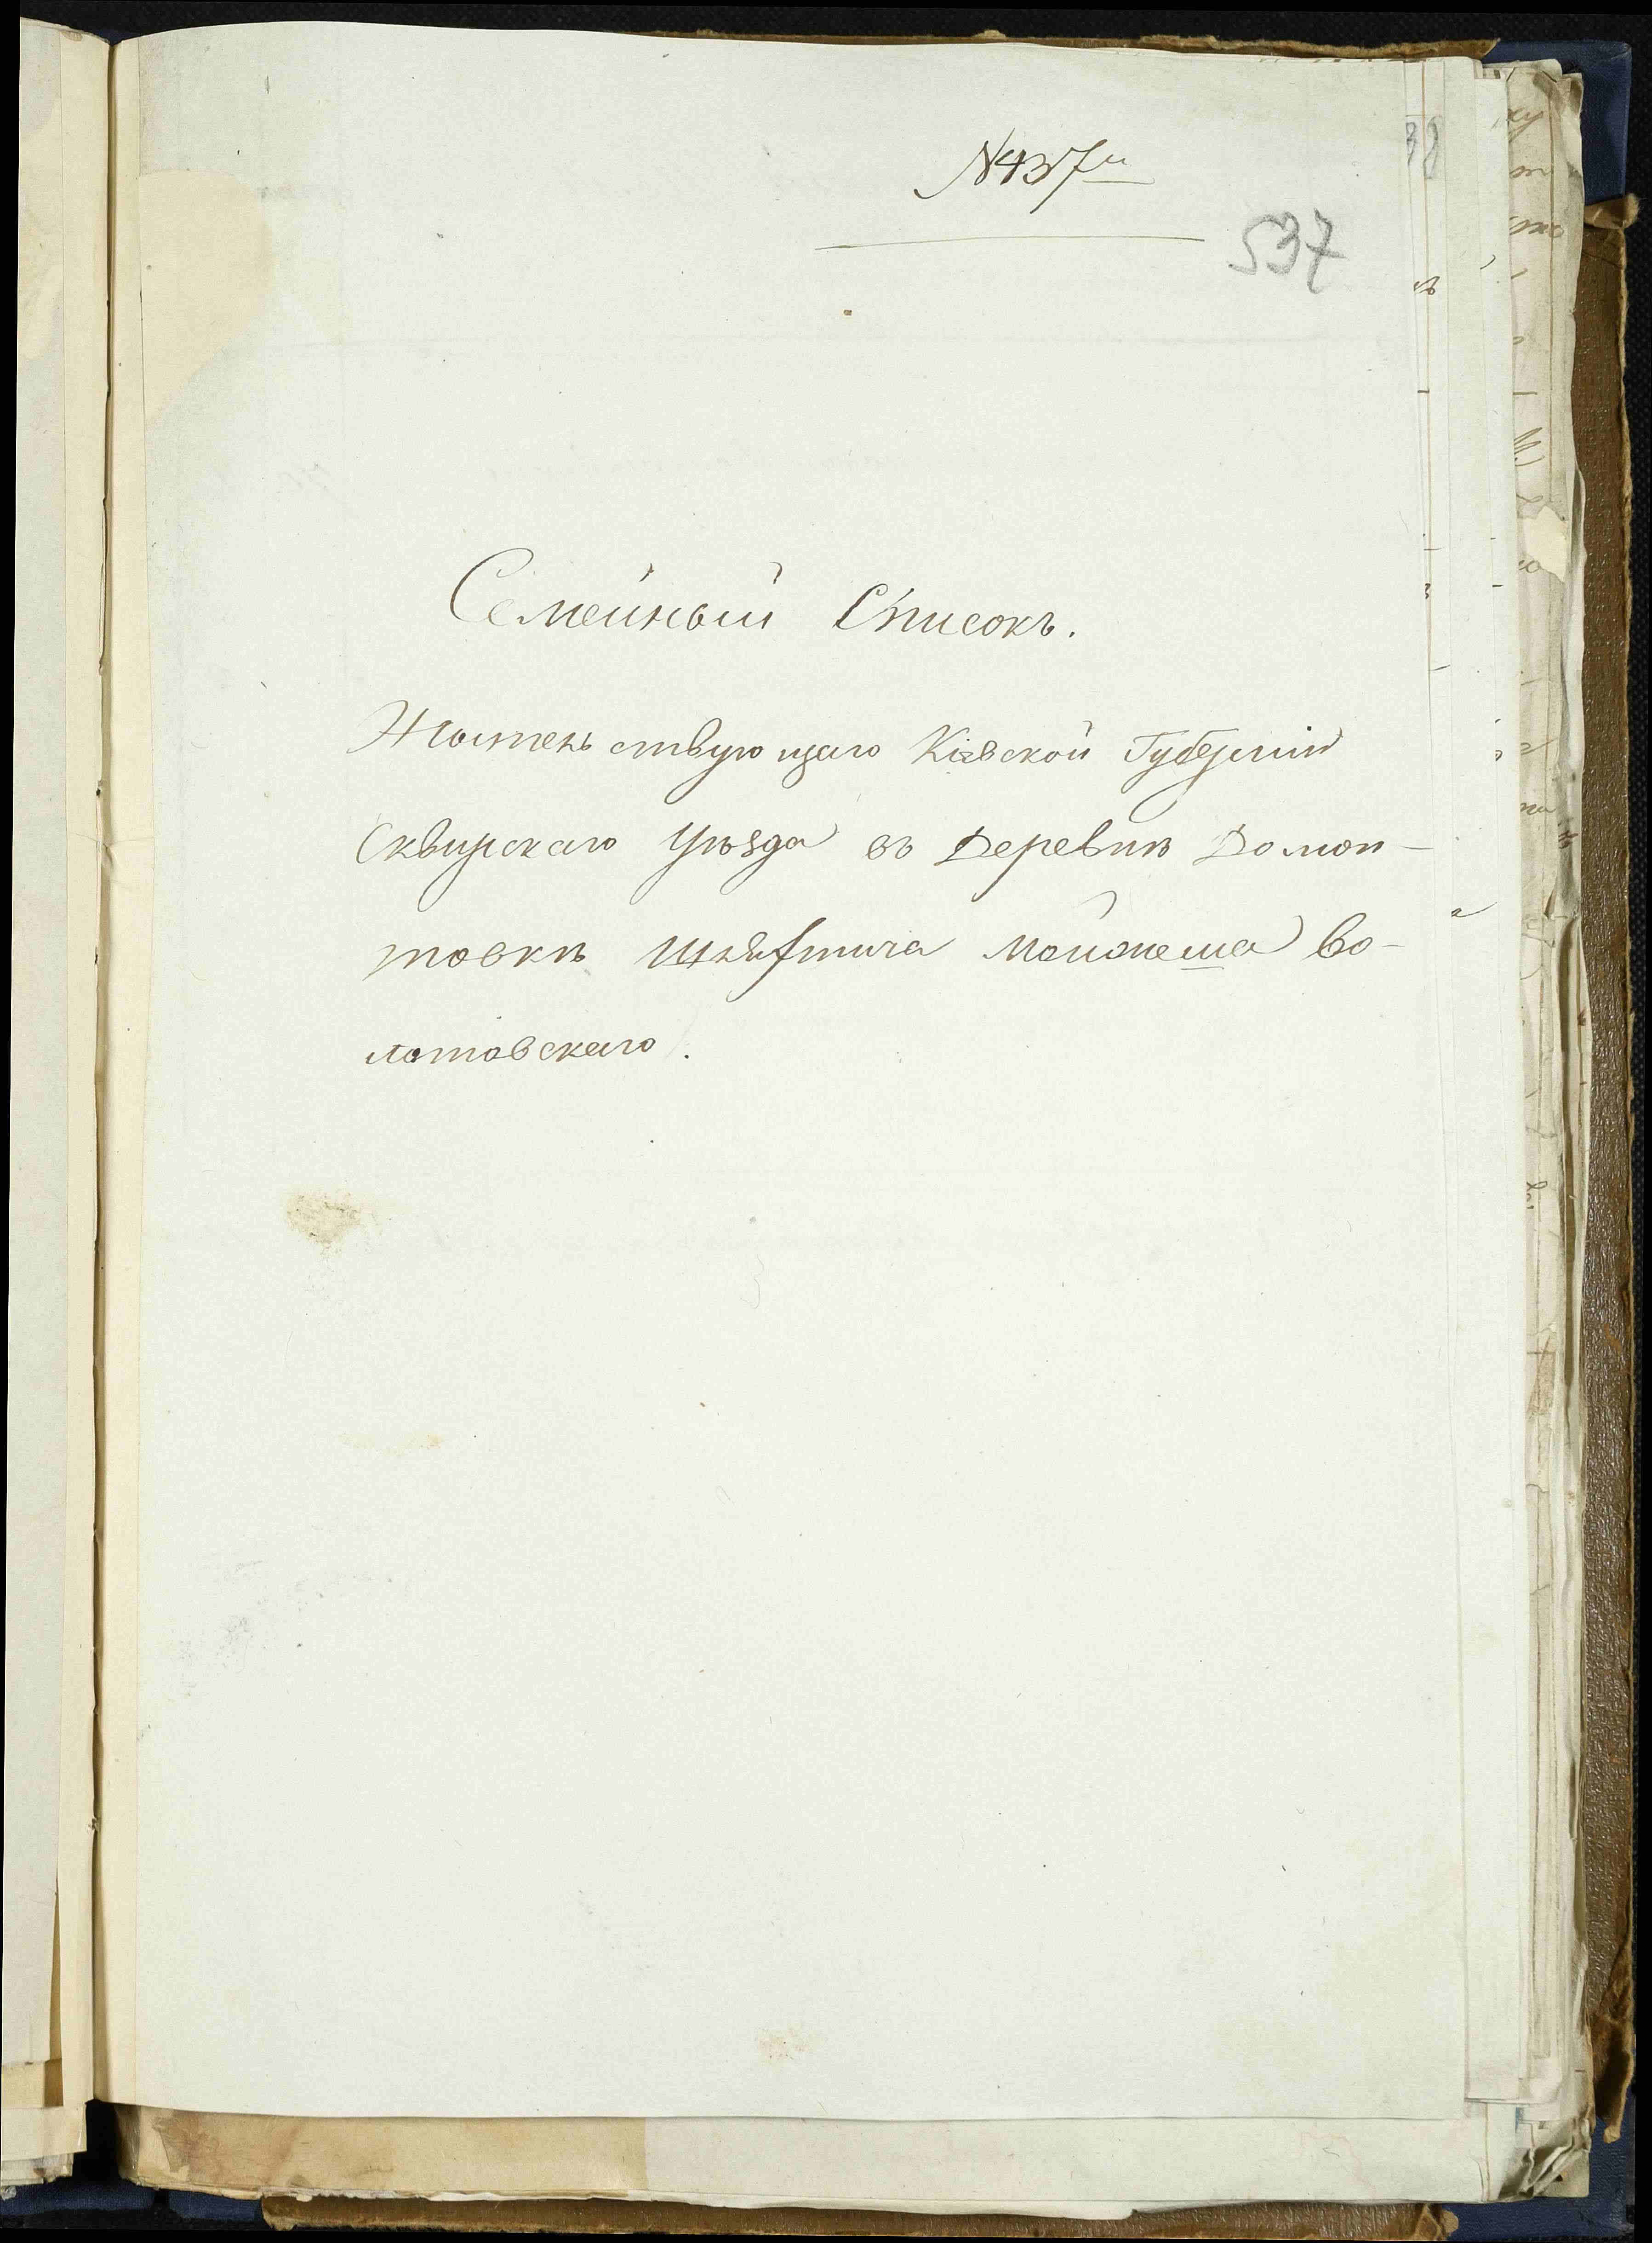 №437й
537
Семейный Списокъ.
Жительствующаго Кіевской Губерніи
Сквирскаго Уѣзда въ Деревни Домон-
товкѣ Шляхтича Мойжеша Во-
лотовскаго.